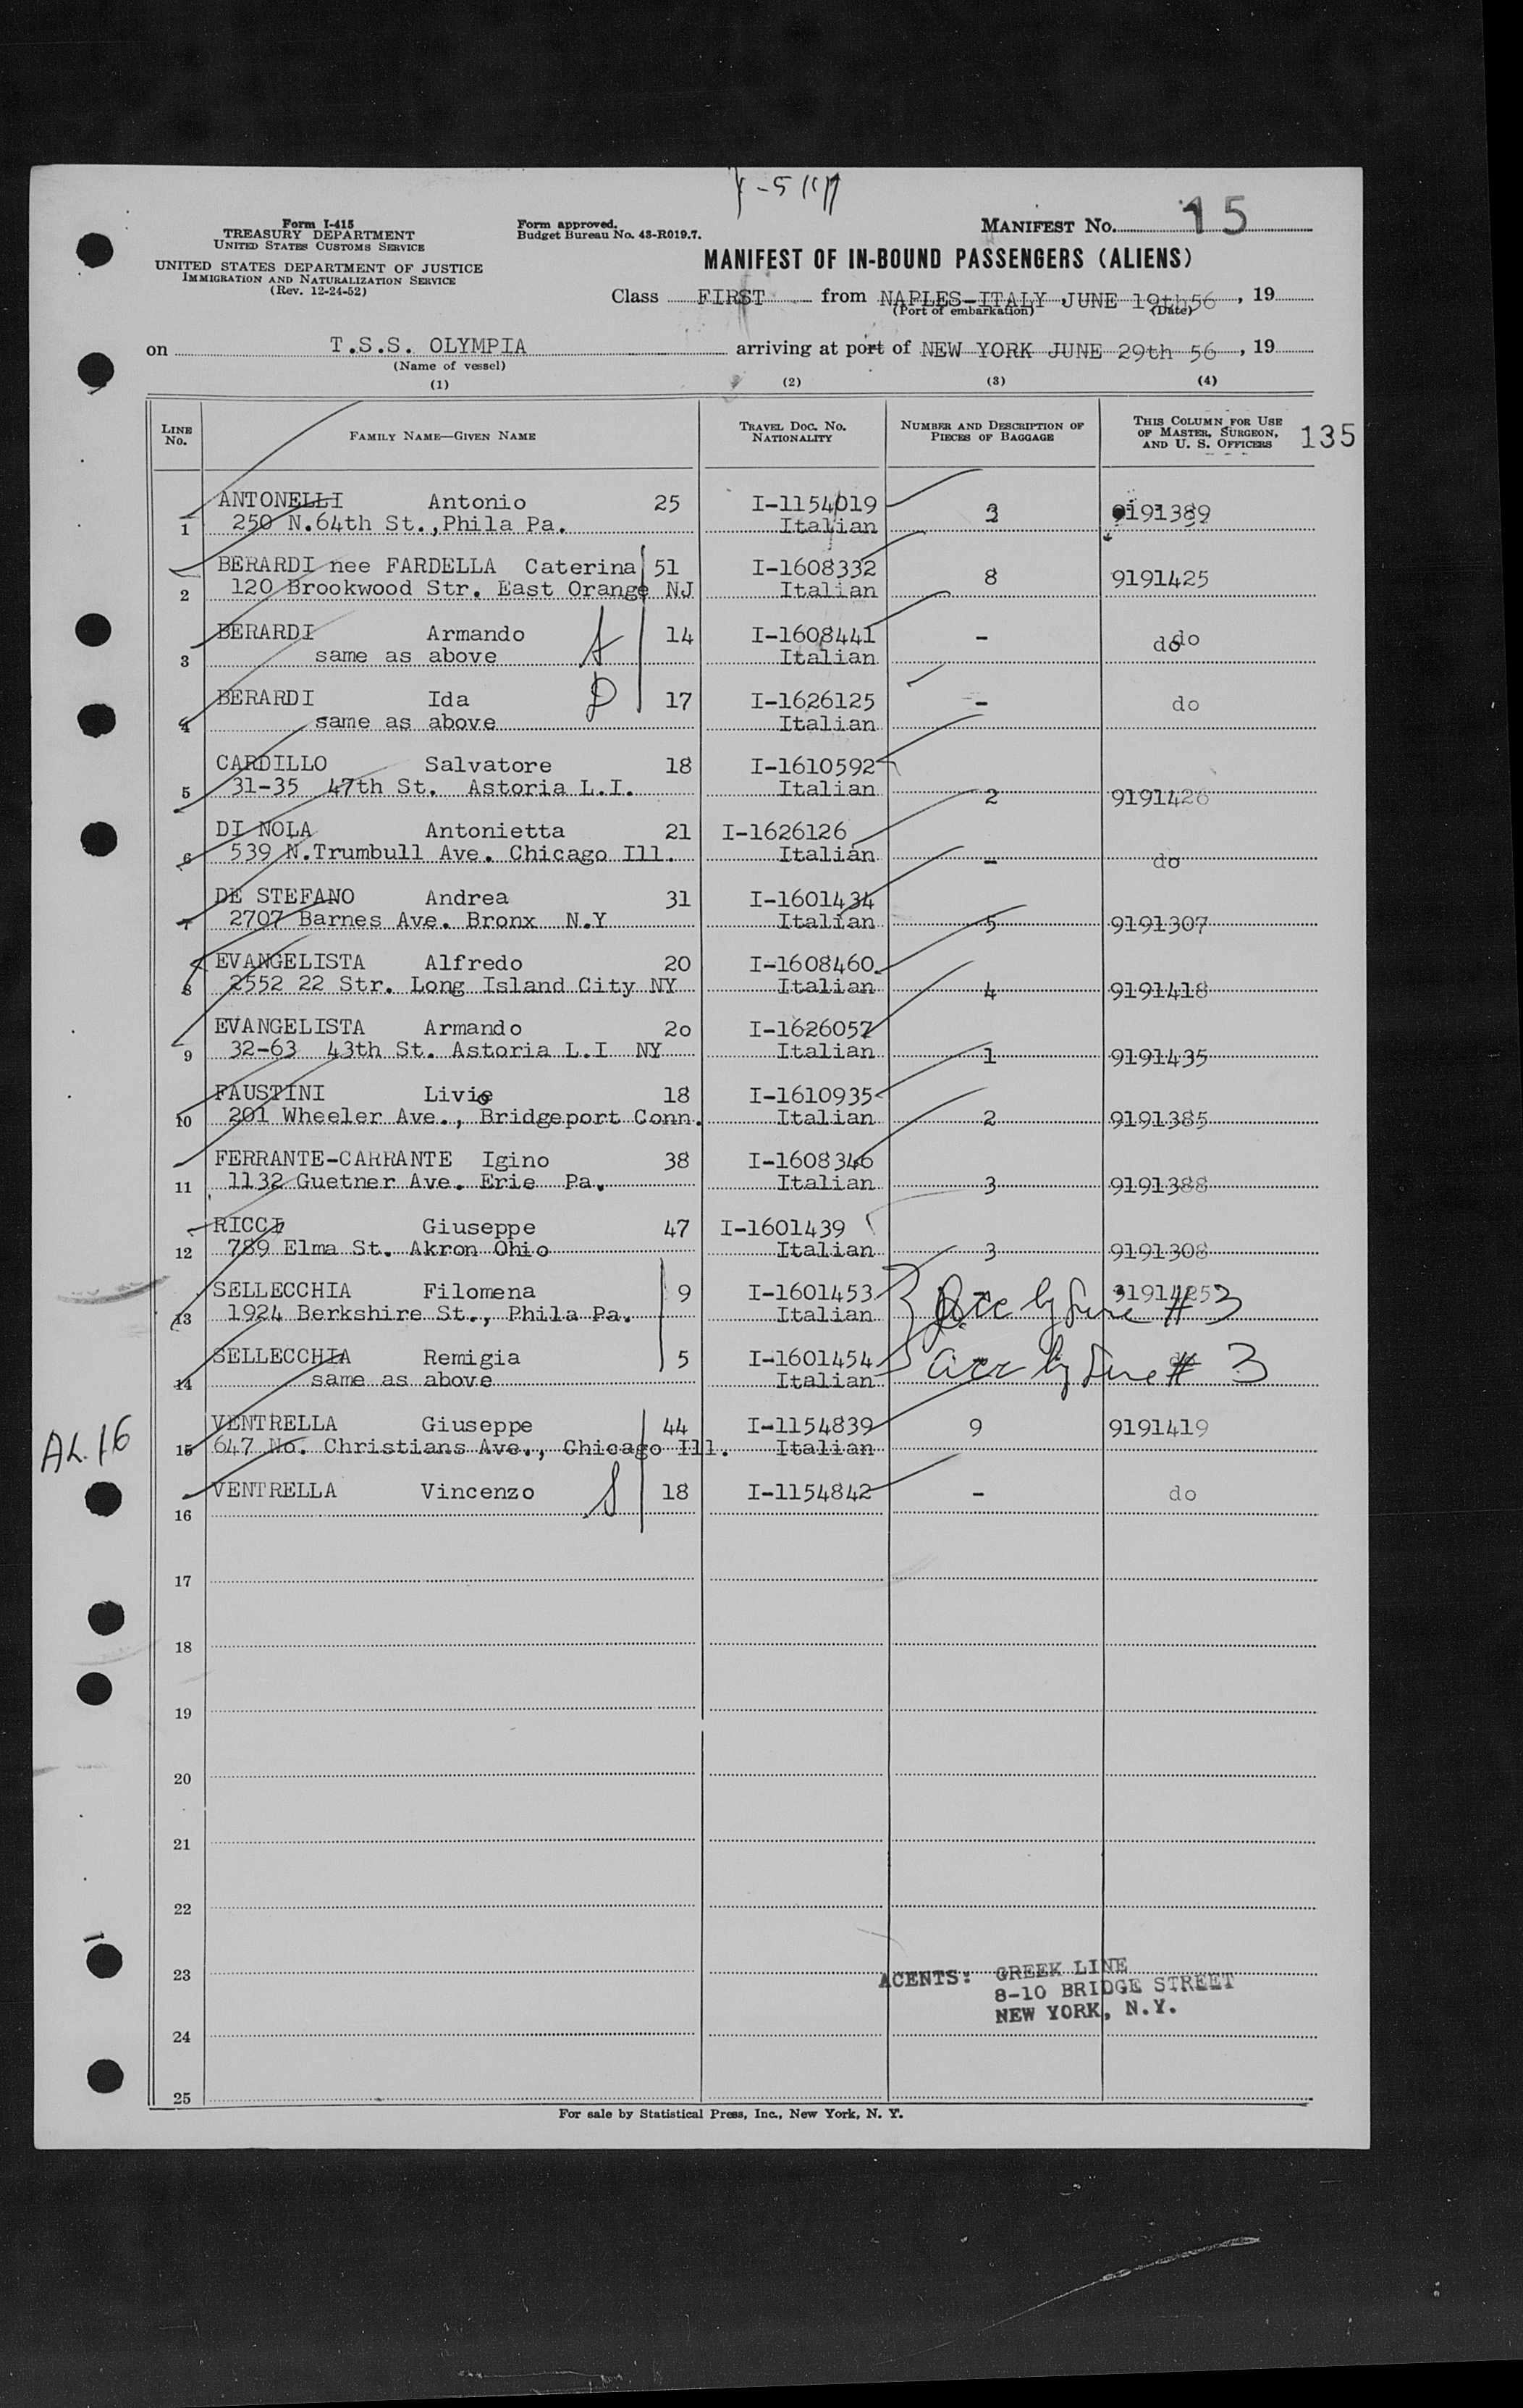 Y-5
Form I-415
TREASURY DEPARTMENT
UNITED STATES CUSTOMS SERVICE
UNITED STATES DEPARTMENT OF JUSTICE
IMMIGRATION AND NATURALIZATION SERVICE
(Rev. 12-24-52)
Form approved.
Budget Bureau No. 43-R019.7.
MANIFEST NO. 15
MANIFEST OF IN-BOUND PASSENGERS (ALIENS)
Class FIRST from NAPLES-ITALY JUNE 19th 56, 19
(Port of embarkation) (Date)
on T.S.S. OLYMPIA arriving at port of NEW YORK JUNE 29th 56, 19
(Name of vessel)
(1) (2) (3) (4)
LINE NO. FAMILY NAME—GIVEN NAME TRAVEL DOC. NO. NATIONALITY NUMBER AND DESCRIPTION OF PIECES OF BAGGAGE THIS COLUMN FOR USE OF MASTER, SURGEON, AND U. S. OFFICERS 135
ANTONELLI Antonio 25 I-1154019 3 9191389
1 250 N.64th St.,Phila Pa. Italian
BERARDI nee FARDELLA Caterina 51 I-1608332 8 9191425
2 120 Brookwood Str. East Orange NJ Italian
BERARDI Armando A 14 I-1608441 - do do
3 same as above Italian
BERARDI Ida D 17 I-1626125 - do
4 same as above Italian
CARDILLO Salvatore 18 I-1610592
5 31-35 47th St. Astoria L.I. Italian 2 9191426
DI NOLA Antonietta 21 I-1626126
6 539 N.Trumbull Ave. Chicago Ill. Italian - do
DE STEFANO Andrea 31 I-1601434
7 2707 Barnes Ave. Bronx N.Y Italian 5 9191307
EVANGELISTA Alfredo 20 I-1608460
8 2552 22 Str. Long Island City NY Italian 4 9191418
EVANGELISTA Armando 2o I-1626057
9 32-63 43th St. Astoria L.I NY Italian 1 9191435
FAUSTINI Livio 18 I-1610935
10 201 Wheeler Ave., Bridgeport Conn. Italian 2 9191385
FERRANTE-CARRANTE Igino 38 I-1608346
11 1132 Guetner Ave. Erie Pa. Italian 3 9191388
RICCI Giuseppe 47 I-1601439
12 789 Elma St. Akron Ohio Italian 3 9191308
SELLECCHIA Filomena 9 I-1601453 -
13 1924 Berkshire St., Phila Pa. Italian Acc by Line # 3
SELLECCHIA Remigia 5 I-1601454 do
14 same as above Italian Acc by Line # 3
VENTRELLA Giuseppe 44 I-1154839 9 9191419
AL.16
15 647 No. Christians Ave., Chicago Ill. Italian
VENTRELLA Vincenzo S 18 I-1154842 - do
16
17
18
19
20
21
22
23
24
25
AGENTS: GREEK LINE
8-10 BRIDGE STREET
NEW YORK, N.Y.
For sale by Statistical Press, Inc., New York, N. Y.